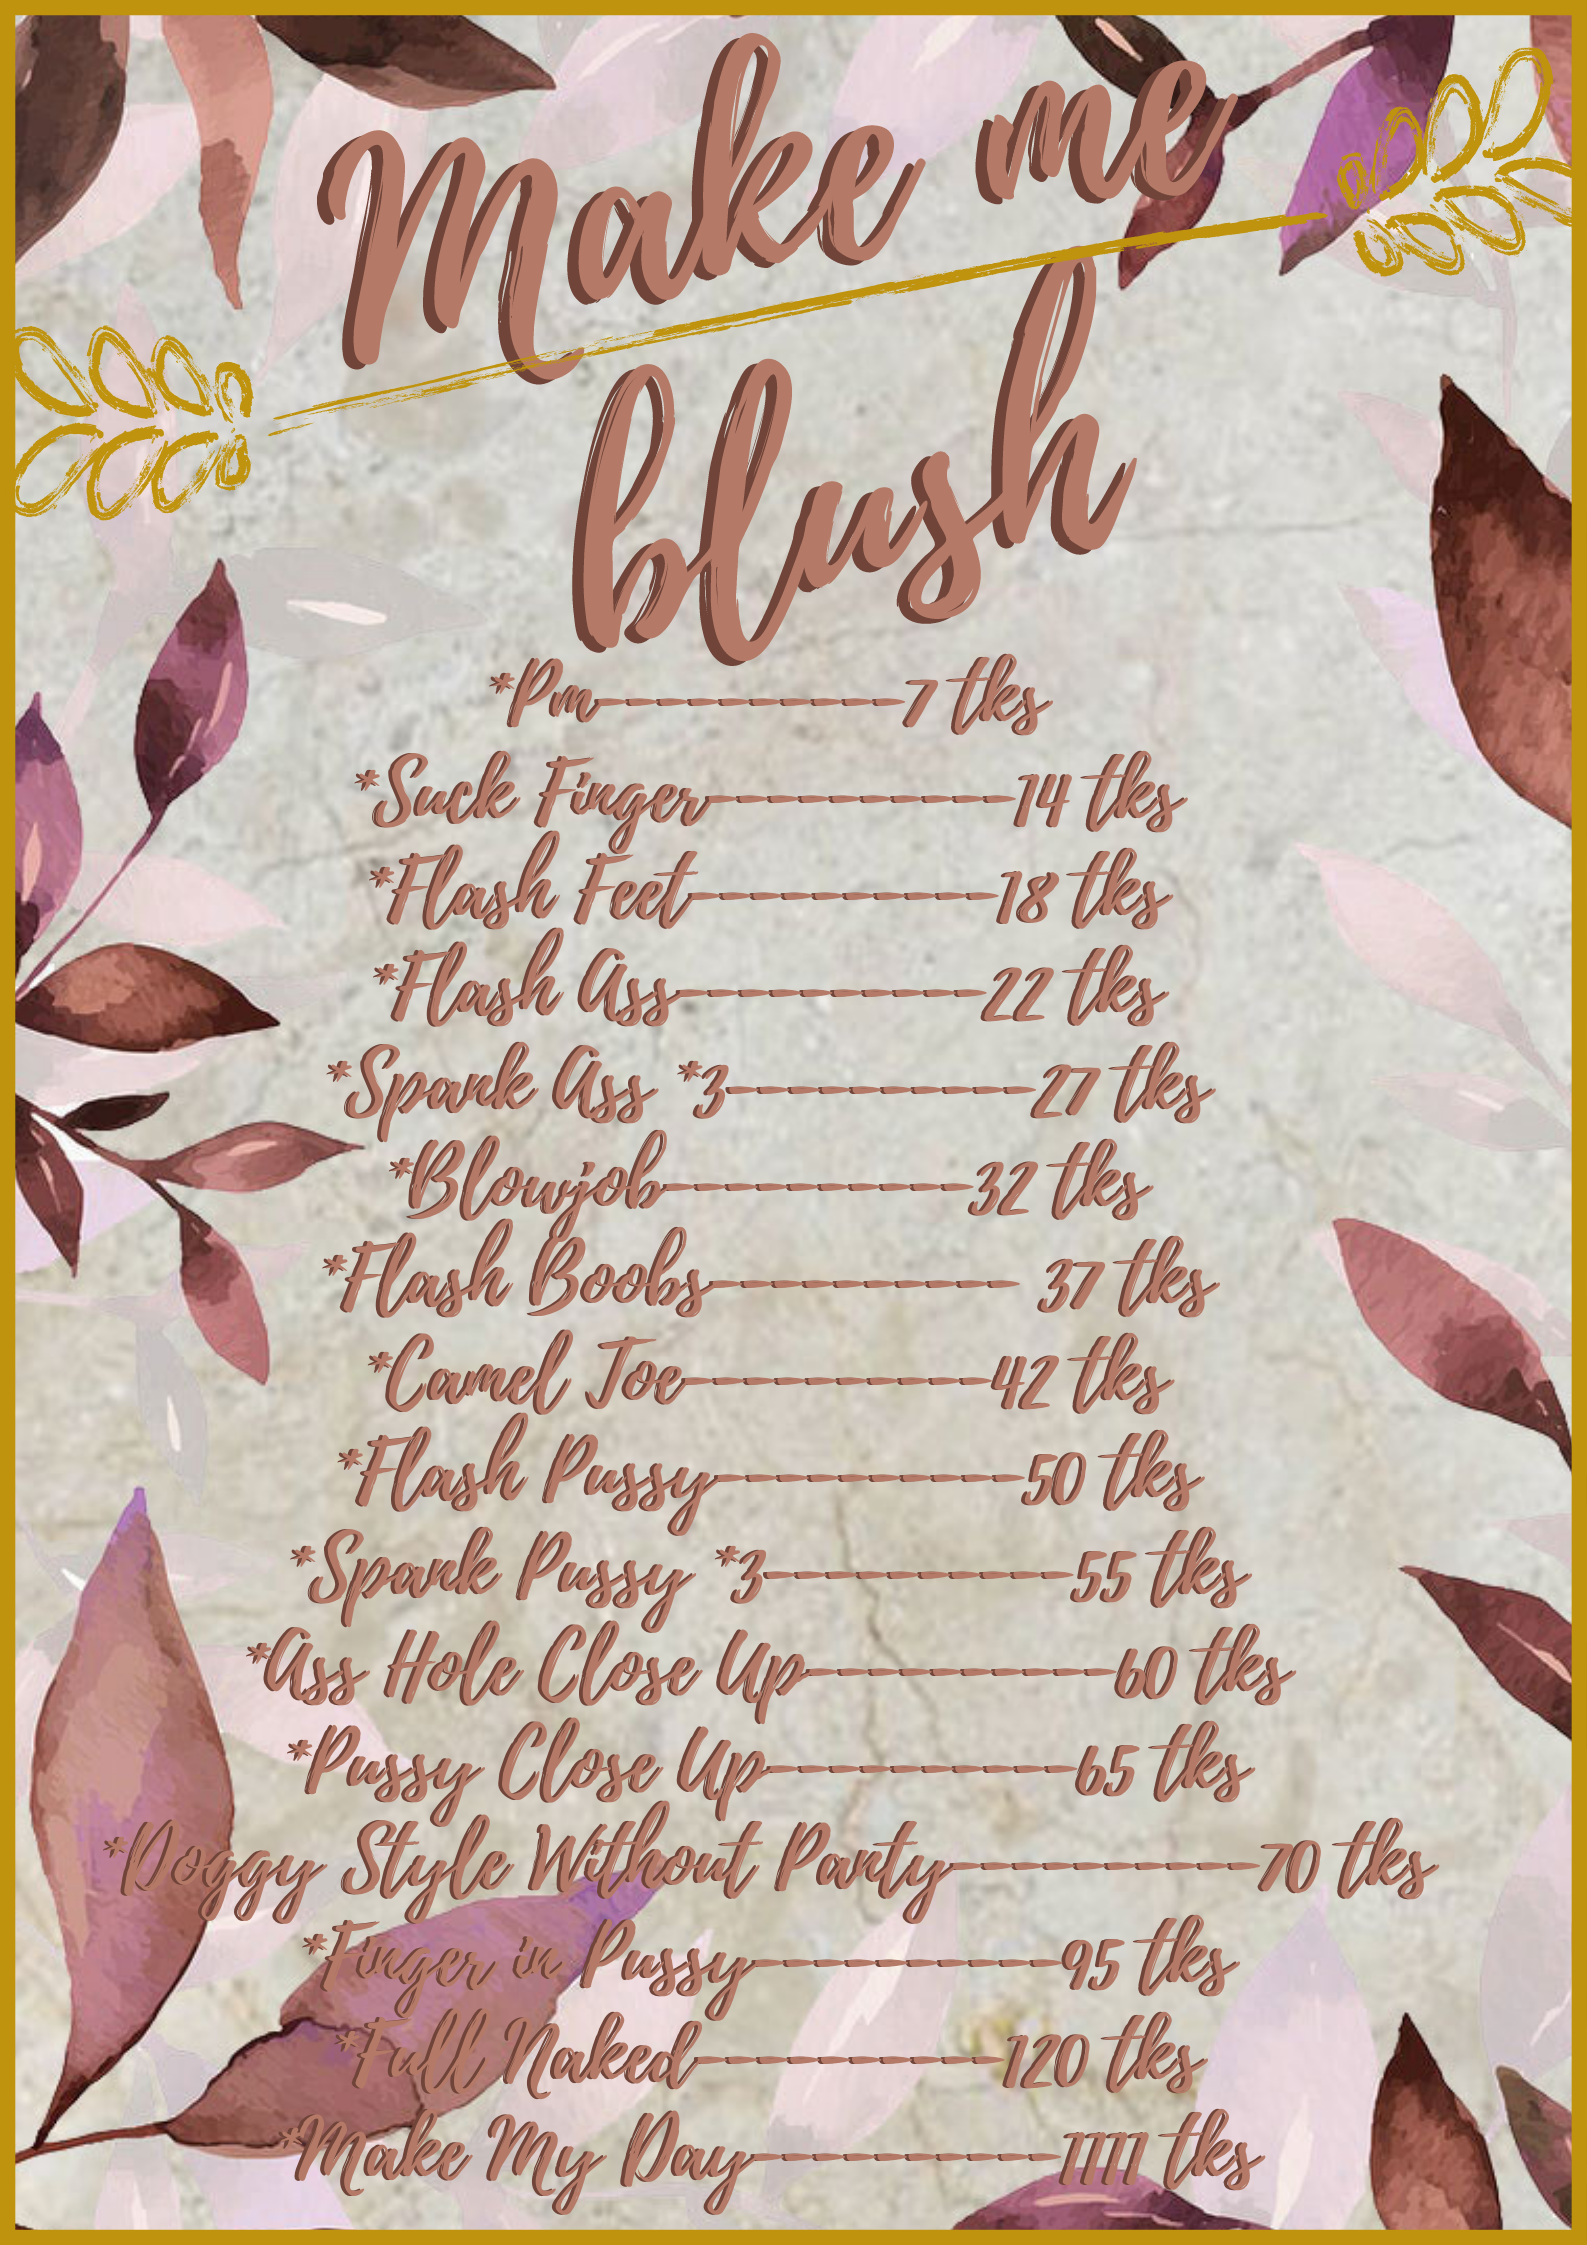 Make me
blush
*Pm----------7 tks
*Suck Finger----------14 tks
*Flash Feet----------18 tks
*Flash Ass----------22 tks
*Spank Ass *3----------27 tks
*Blowjob----------32 tks
*Flash Boobs---------- 37 tks
*Camel Toe----------42 tks
*Flash Pussy----------50 tks
*Spank Pussy *3----------55 tks
*Ass Hole Close Up----------60 tks
*Pussy Close Up----------65 tks
*Doggy Style Without Panty----------70 tks
*Finger in Pussy----------95 tks
*Full Naked----------120 tks
*Make My Day----------1111 tks